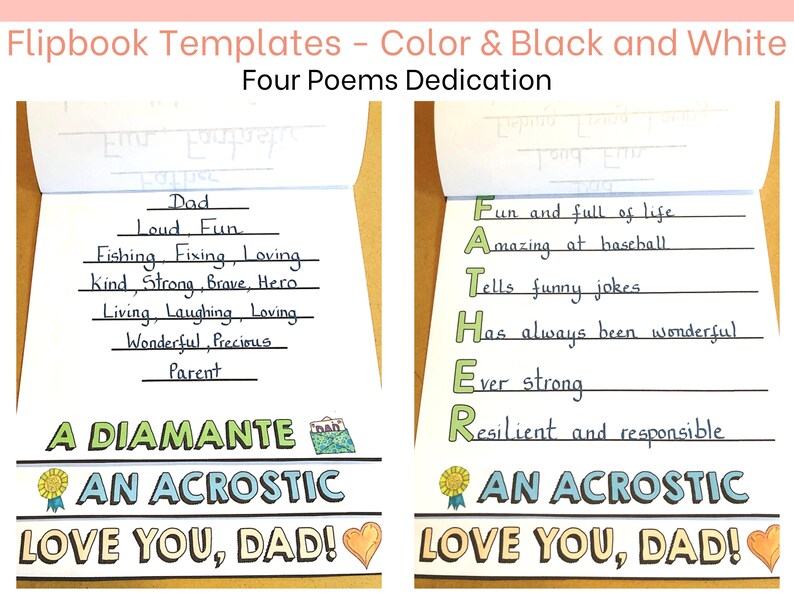 Flipbook Templates - Color & Black and White
Four Poems Dedication
Fun, Fantastic
Father
Dad
Loud, Fun
Fishing, Fixing, Loving
Kind, Strong, Brave, Hero
Living, Laughing, Loving
Wonderful, Precious
Parent
A DIAMANTE DAD
AN ACROSTIC
LOVE YOU, DAD!
Fishing Fixing Loving
Loud Fun
Dad
Fun and full of life
Amazing at baseball
Tells funny jokes
Has always been wonderful
Ever strong
Resilient and responsible
AN ACROSTIC
LOVE YOU, DAD!